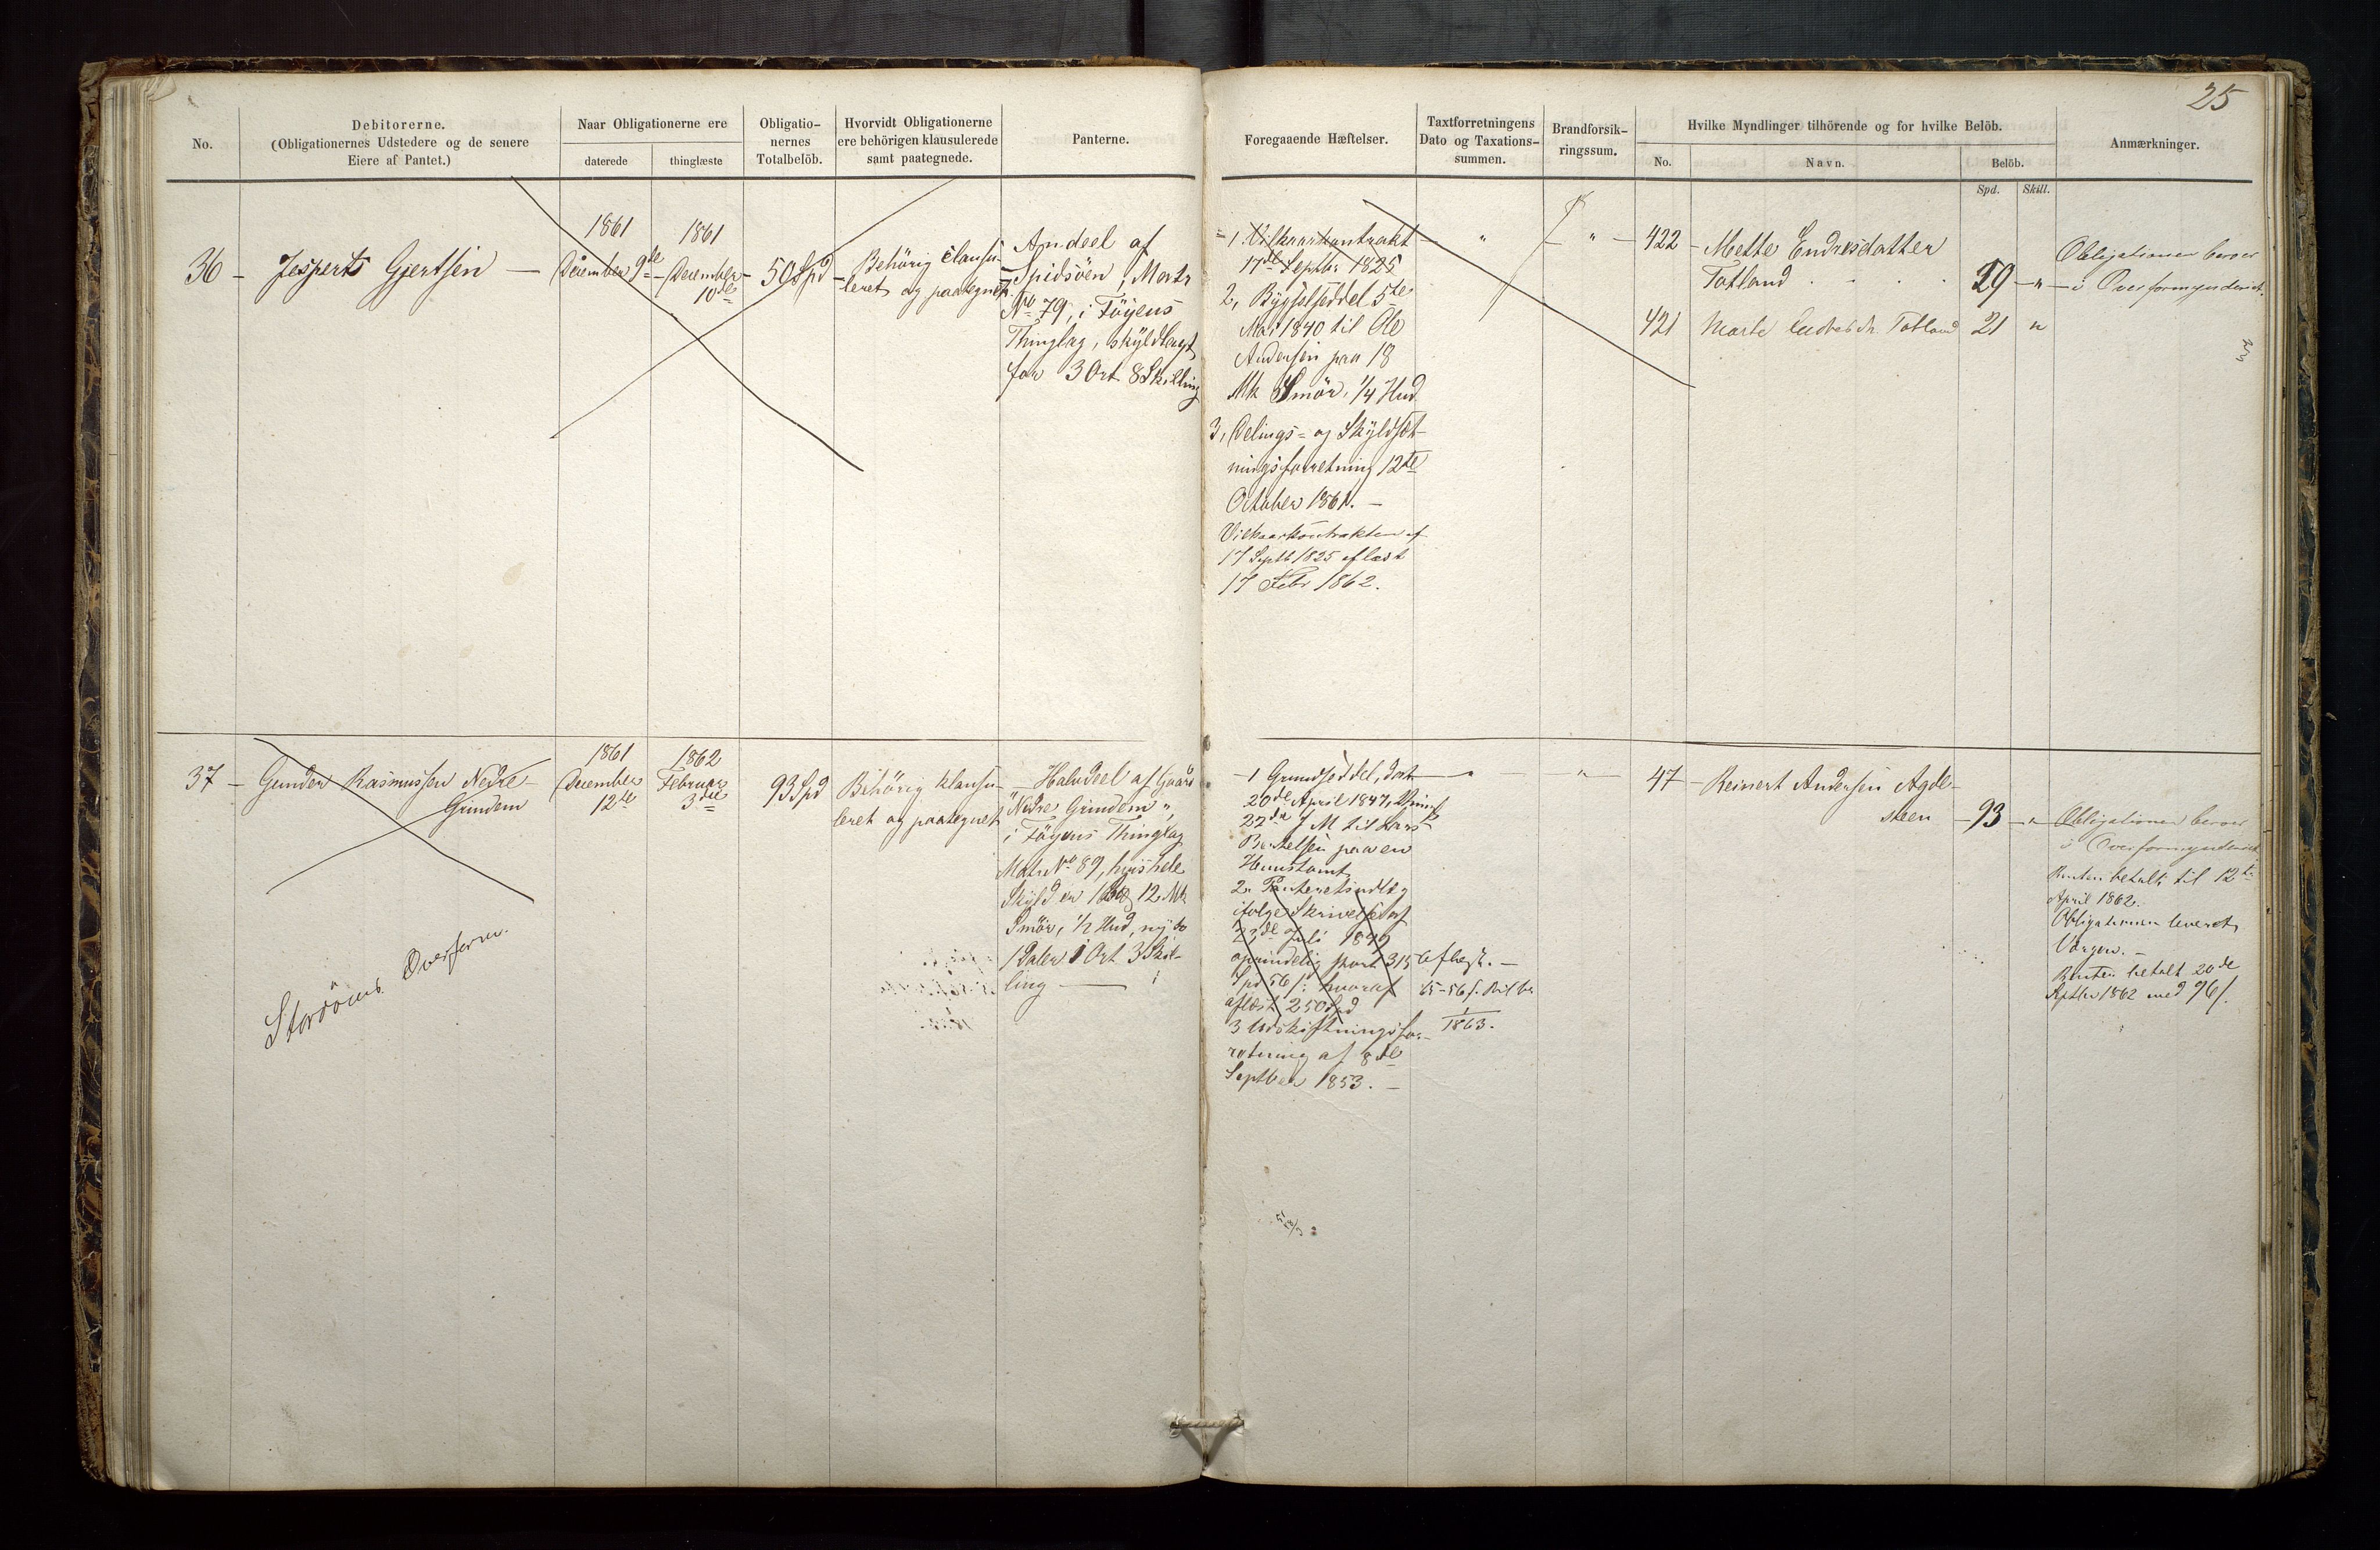 25
No.
Debitorerne.
(Obligationernes Udstedere og de senere
Eiere af Pantet.)
Naar Obligationerne ere
daterede
thinglæste
Obligatio-
nernes
Totalbelöb.
Hvorvidt Obligationerne
ere behörigen klausulerede
samt paategnede.
Panterne.
Foregaaende Hæftelser.
Taxtforretningens
Dato og Taxations-
summen.
Brandforsik-
ringssum.
Hvilke Myndlinger tilhörende og for hvilke Belöb.
No.
Navn.
Belöb.
Spd.
Skill.
Anmærkninger.
36 - Jesperts Gjertsen -
1861
December 9de
1861
December
10de
50 Spd
Behörig clausu-
leret og paategnet
Andeel af
Spidsöen, Matr
No 79, i Föyens
Thinglag, skyldlagt
for 3 Ort 8 Skilling
1 Vilkaarkontrakt
17de Septbr 1825
2, Bygselseddel 5te
Mai 1840 til Ole
Andersen paa 18
Mk Smör, 1/4 Hud
3, Delings- og Skyldsæt-
ningsforretning 12te
October 1861. -
Vilkaarkontrakten af
17 Septb 1825 aflæst
17 Febr 1862.
422 - Mette Endresdatter
Totland
29 - " -
421 Marte Endresdr. Totland 21 "
Obligationen beroer
i Overformynderiet.
37 - Gunder Rasmussen Nedre
Grindem
Stordöens Overform.
1861
December
12te
1862
Februar
3die
93 Spd
Behörig klausu-
leret og paategnet
Halvdeel af Gaard
"Nedre Grindem"
i Föyens Thinglag
Matr No 89, hvis hele
Skyld er 12 Mk
Smör, 1/2 Hud, ny
1 Daler 1 Ort 3 Skil-
ling
1 Grundseddel, dat
20de April 1847,
22de til Lars
Bertelsen paa en
Huustomt
2. Panteretsudlæg
ifölge Skrivelse af
23de Juli 1849
oprindelig stort 315
Spd 56 /: hvoraf
aflæst 250 Spd
3 Udskiftningsfor-
retning af 8de
Septber 1853. -
aflagt. -
65-56 /.
1863.
47 - Reinert Andersen Agde-
steen - 93 - " -
Obligationen beroer
i Overformynderiet
Renten betalt til 12te
April 1862.
Obligationen leveret
Værgen. -
Renten betalt 20de
Septbr 1862 med 96 /.